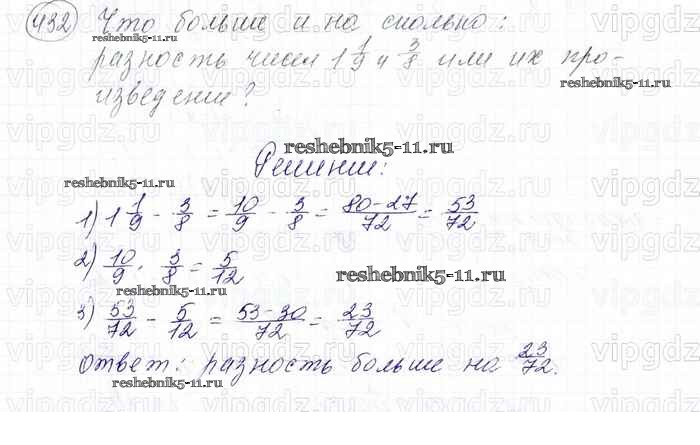 432 Что больше и на сколько:
разность чисел 1 1/9 и 3/8 или их про-
изведение?
Решение:
1) 1 1/9 - 3/8 = 10/9 - 3/8 = 80-27/72 = 53/72
2) 10/9 · 3/8 = 5/12
3) 53/72 - 5/12 = 53-30/72 = 23/72
Ответ: разность больше на 23/72.
reshebnik5-11.ru
reshebnik5-11.ru
reshebnik5-11.ru
reshebnik5-11.ru
reshebnik5-11.ru
reshebnik5-11.ru
reshebnik5-11.ru
vipgdz.ru